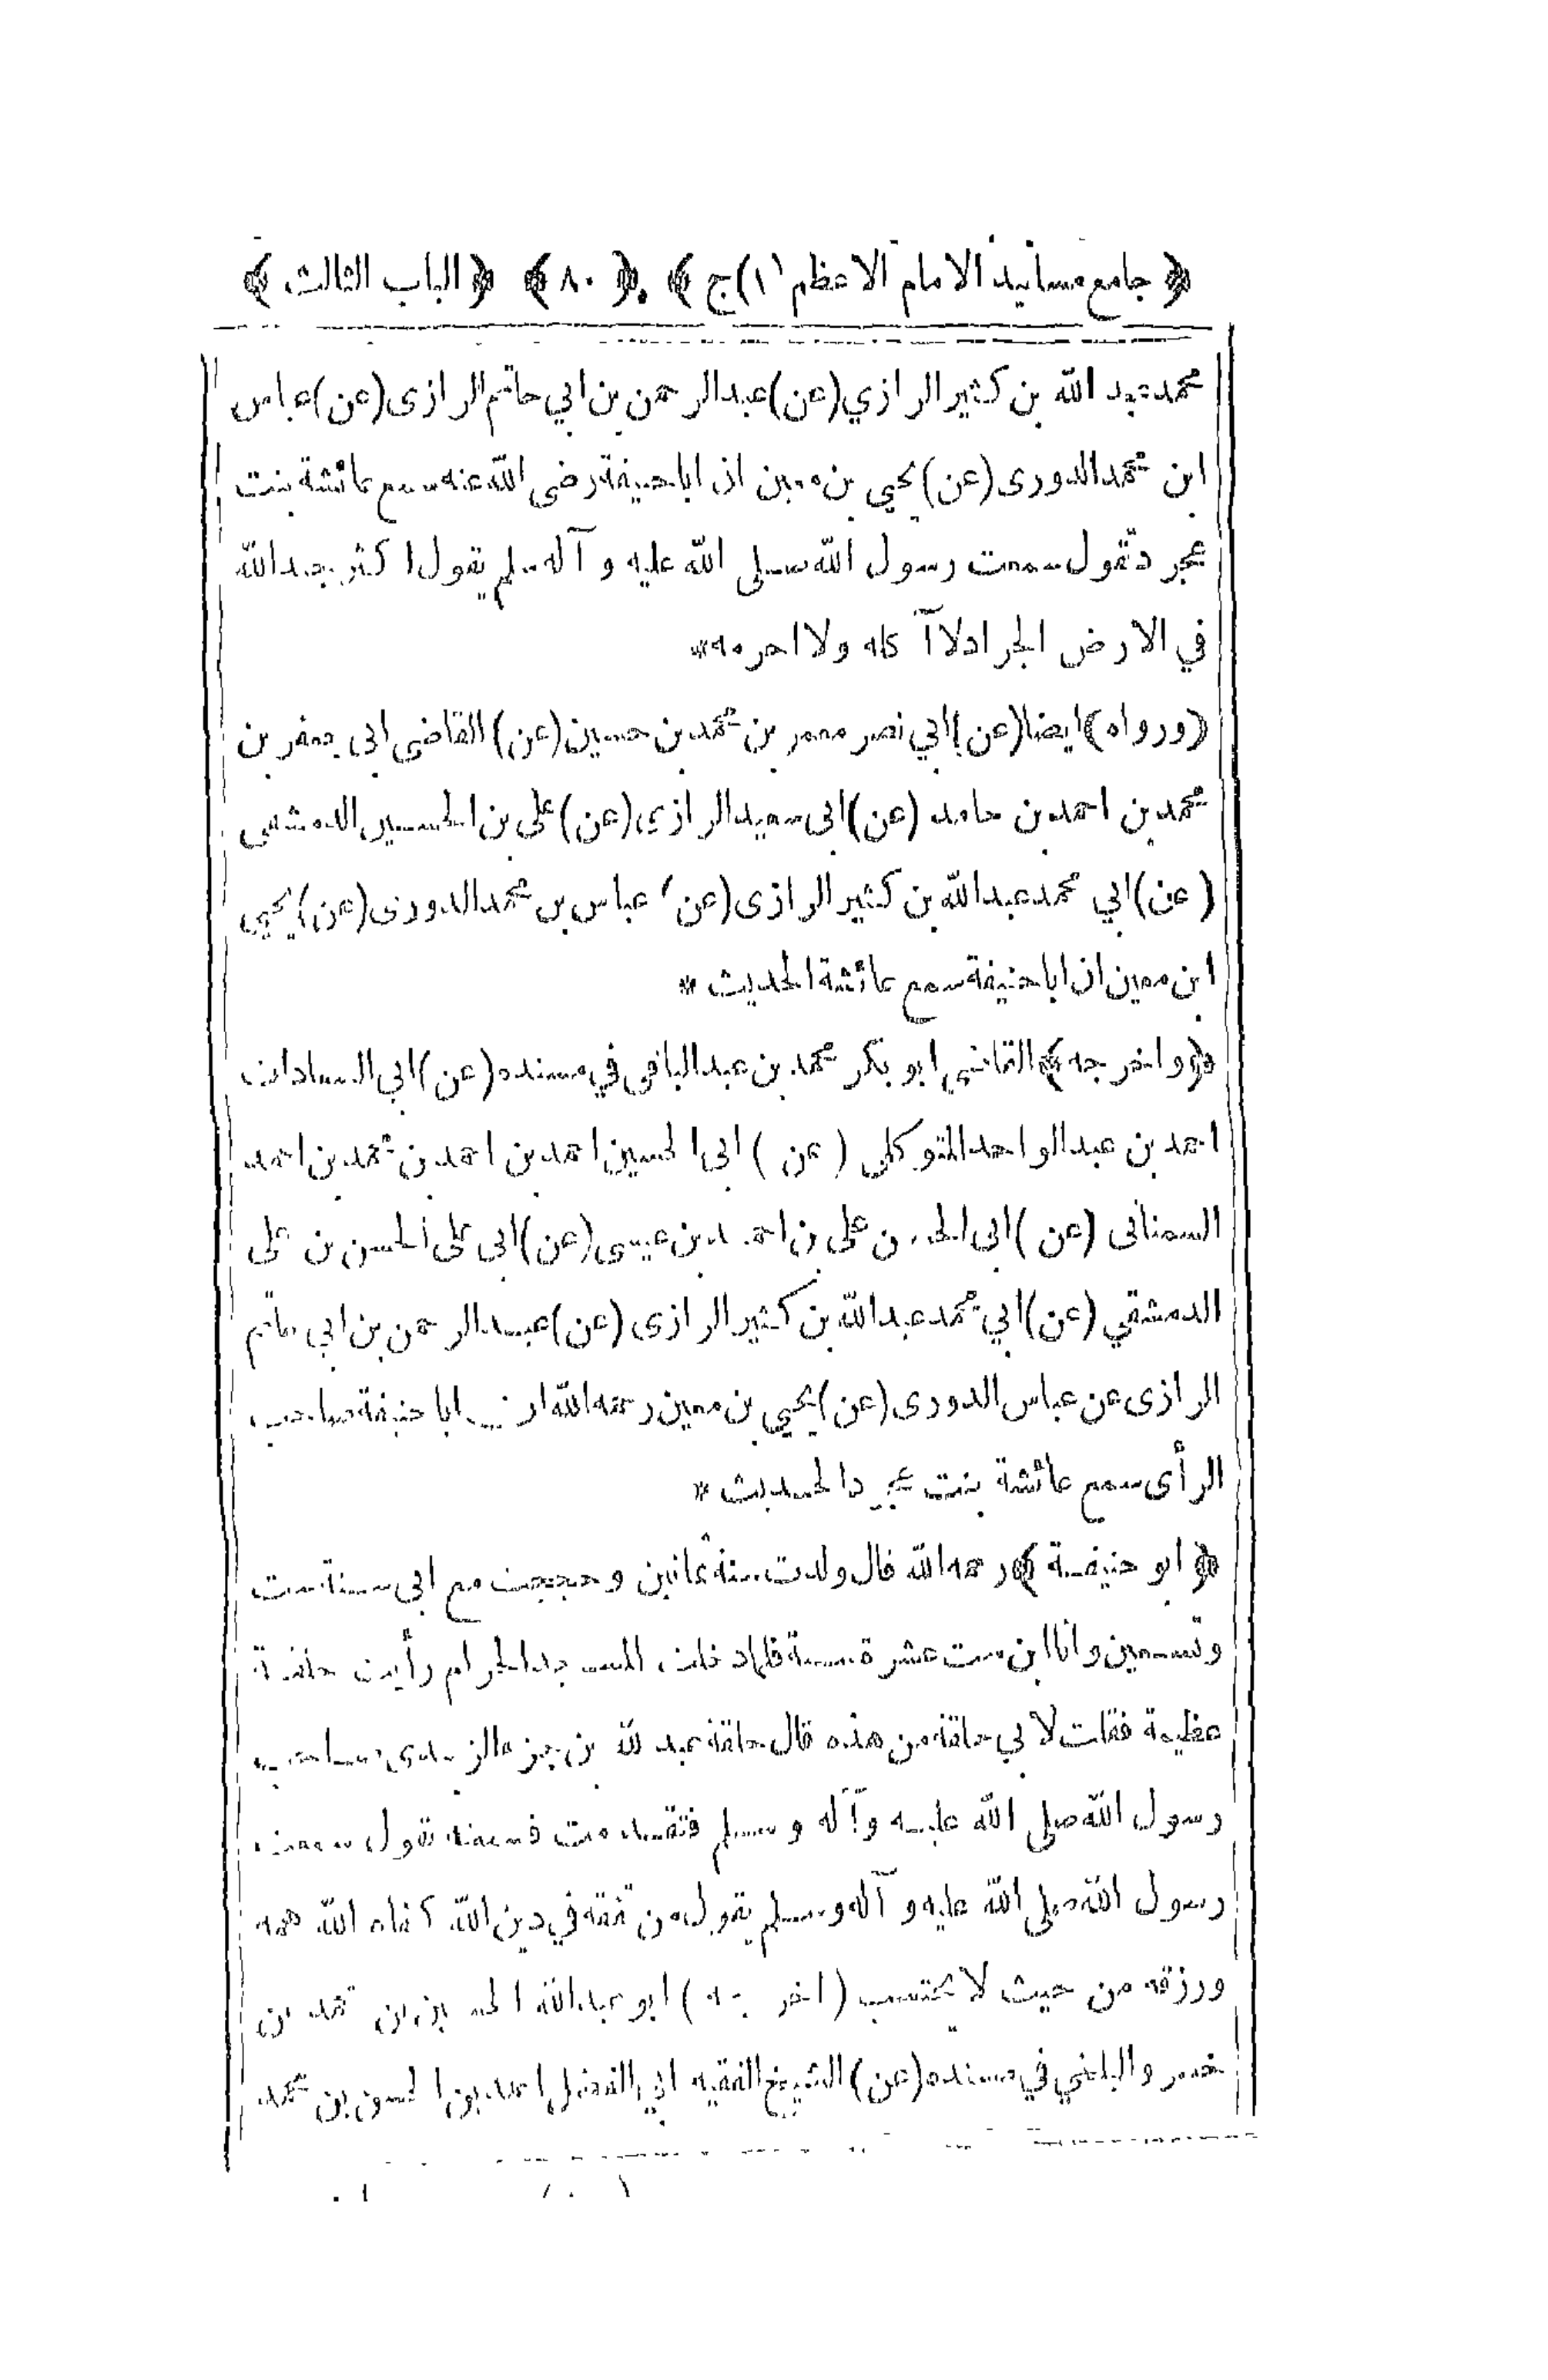 ﴿ جامع مسانيد الامام الاعظم (١)ج ﴾ ﴿ ٨٠ ﴾ ﴿ الباب الثالث ﴾
محمد عبد الله بن كثير الرازي (عن) عبد الرحمن بن ابي حاتم الرازى (عن) عباس
ابن محمد الدورى (عن) يحيي بن معين ان ابا حنيفة رضى الله عنه سمع عائشة بنت
عجرد تقول سمعت رسول الله صلى الله عليه و آله سلم يقول اكثر جند الله
في الارض الجراد لا آكله ولا احرمه *
﴿ورواه﴾ ايضا (عن) ابي نصر معمر بن محمد بن حسين (عن) القاضى ابى جعفر بن
محمد بن احمد بن حامد (عن) ابى سعيد الرازى (عن) على بن الحسين الدمشقى
(عن) ابي محمد عبد الله بن كثير الرازى (عن) عباس بن محمد الدورى (عن) يحيي
ابن معين ان ابا حنيفة سمع عائشة الحديث *
﴿واخرجه﴾ القاضي ابو بكر محمد بن عبد الباقى في مسنده (عن) ابى السادات
احمد بن عبد الواحد المتوكلى (عن) ابى الحسين احمد بن احمد بن محمد بن احمد
السمنانى (عن) ابى الحسن على بن احمد بن عيسى (عن) ابى على الحسن بن على
الدمشقي (عن) ابي محمد عبد الله بن كثير الرازى (عن) عبد الرحمن بن ابي حاتم
الرازى عن عباس الدورى (عن) يحيي بن معين رحمه الله ان ابا حنيفة صاحب
الرأى سمع عائشة بنت عجرد الحديث *
﴿ ابو حنيفة ﴾ رحمه الله قال ولدت سنة ثمانين وحججت مع ابى سنة ست
وتسعين وانا ابن ست عشرة سنة فلما دخلت المسجد الحرام رأيت حلقة
عظيمة فقلت لابي حلقة من هذه قال حلقة عبد الله بن جزء الزبيدى صاحب
رسول الله صلى الله عليه وآله وسلم فتقدمت فسمعته يقول سمعت
رسول الله صلى الله عليه و آله وسلم يقول من تفقه في دين الله كفاه الله همه
ورزقه من حيث لا يحتسب (اخرجه) ابو عبد الله الحسين بن محمد بن
خسرو البلخي في مسنده (عن) الشيخ الفقيه ابي الفضل احمد بن الحسن بن محمد